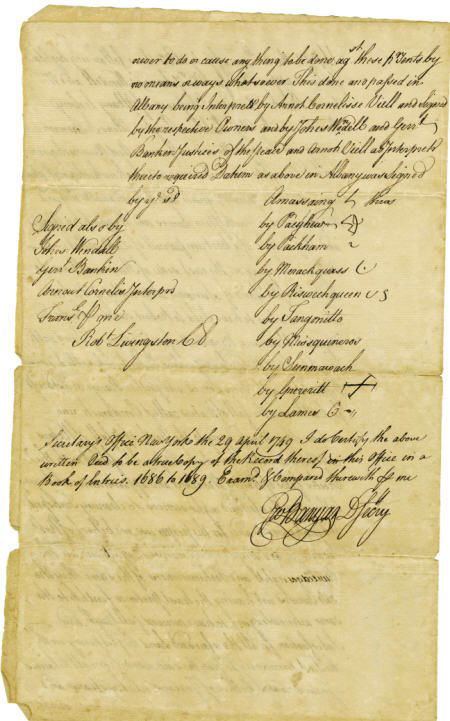 never to do or cause any thing to be done agst these pr sents by
no means or ways whatsoever. This done and passed in
Albany being Interpretd by Arnot Cornelisse Viell and Signed
by the respective Owners and by Johes Wendell and Gerrt
Banker Justices of the Peace and Arnot Viell as Interpretr
thereto required Datum as above in Albany was Signed
by
Signed also by
Johes Wendall
Gerrt Banker
Cornelis Interpr
me
Robt Livingston Cl
Amassaing thus
by Packham
by Menachquass
by Riswechqueen
by Tangonitto
by Missquineros
by Sunmawach
by
by Lames
Secretarys Office New York the 29 April 1749 I do Certify the above
written Deed to be a true Copy of the Record thereof in this Office in a
Book of Entries. 1686 to 1689. Examd. & Compared therewith pr me
Geo Banyar D Secry